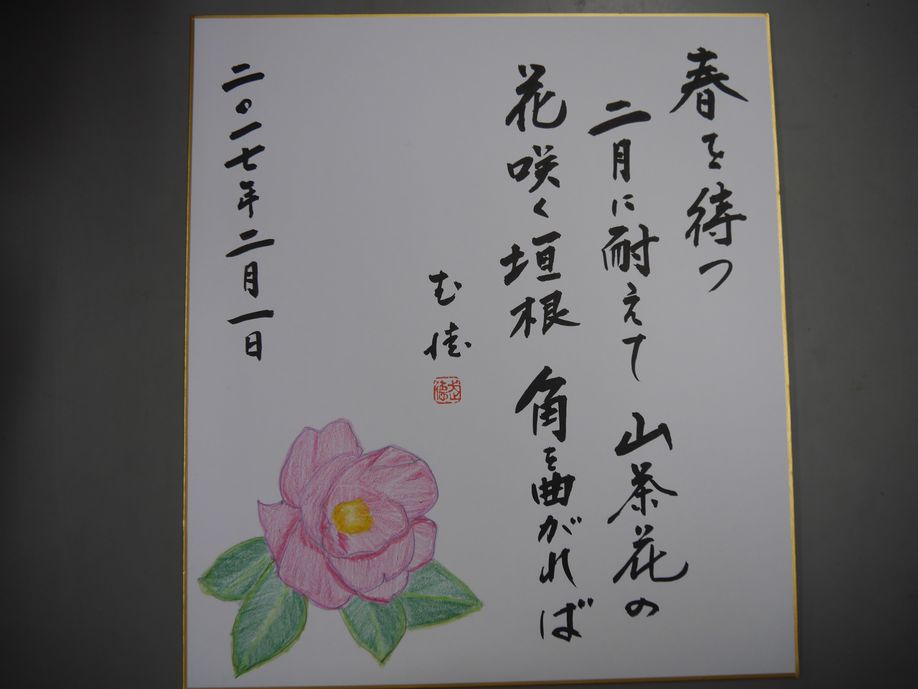 春を待つ
二月に耐えて 山茶花の
花咲く垣根 角を曲がれば
二〇一七年二月一日